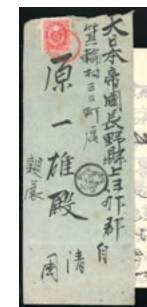 大日本帝國長野縣上伊那郡
箕輪村三日町區
原一雄殿
親展
自
清國